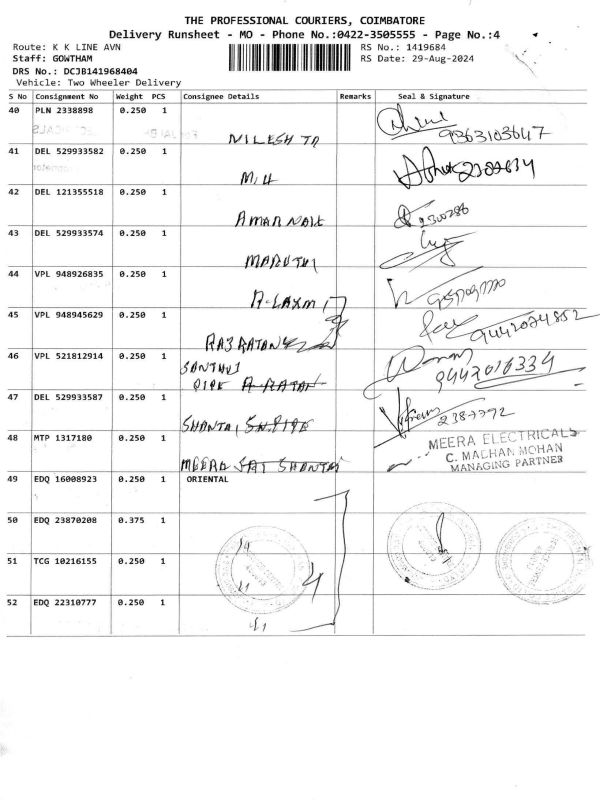 THE PROFESSIONAL COURIERS, COIMBATORE
Delivery Runsheet - MO - Phone No.:0422-3505555 - Page No.:4
Route: K K LINE AVN
RS No.: 1419684
Staff: GOWTHAM
RS Date: 29-Aug-2024
DRS No.: DCJB141968404
Vehicle: Two Wheeler Delivery
S No Consignment No Weight PCS Consignee Details Remarks Seal & Signature
40 PLN 2338898 0.250 1
NILESH TD 9363103647
41 DEL 529933582 0.250 1
42 DEL 121355518 0.250 1
AMAR NATH
43 DEL 529933574 0.250 1
MARUTHI
44 VPL 948926835 0.250 1
A-LAXMI
45 VPL 948945629 0.250 1
RAJRATAN 9442024852
46 VPL 521812914 0.250 1
SANTHUJ
PIPE A RATAN 9442016334
47 DEL 529933587 0.250 1
SHANTAI 2387792
48 MTP 1317180 0.250 1
MEERA SAI SHANTAI
MEERA ELECTRICALS
C. MADHAN MOHAN
MANAGING PARTNER
49 EDQ 16008923 0.250 1 ORIENTAL
50 EDQ 23870208 0.375 1
51 TCG 10216155 0.250 1
4
52 EDQ 22310777 0.250 1